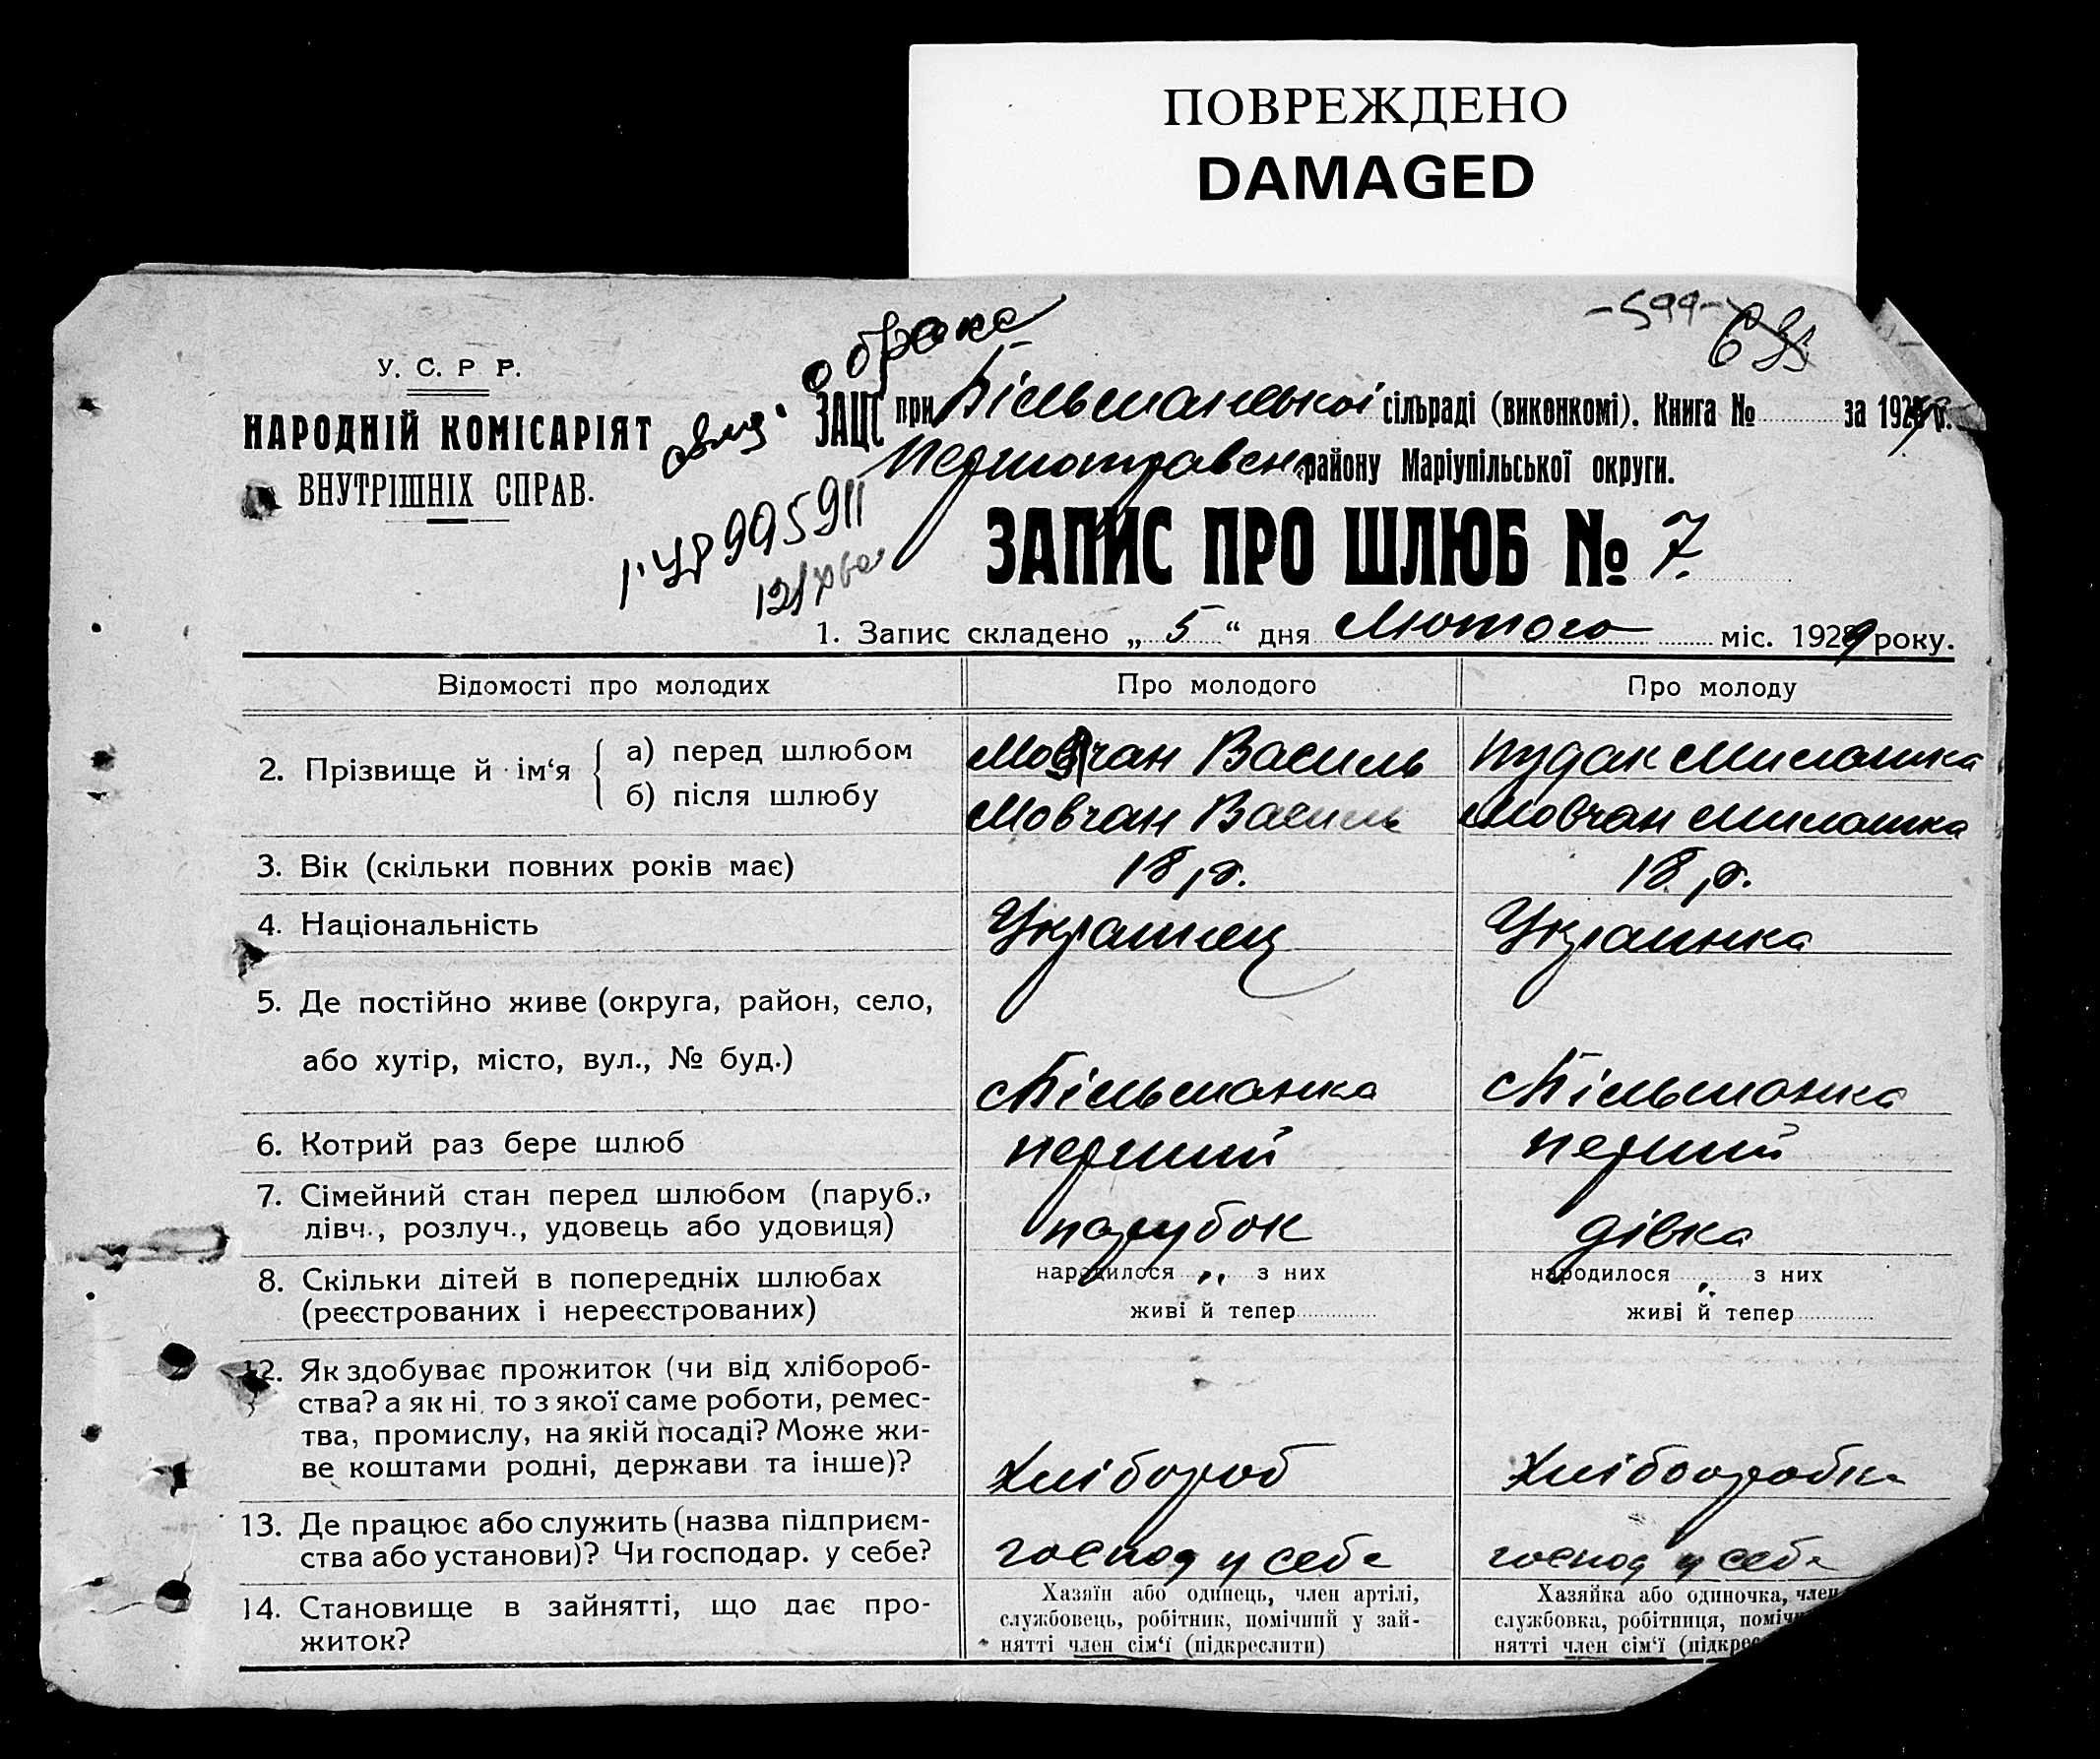 ПОВРЕЖДЕНО
DAMAGED
-599-
о браке
У. С. Р. Р.
НАРОДНІЙ КОМІСАРІЯТ
ВНУТРІШНІХ СПРАВ.
ЗАЦС при сільраді (виконкомі). Книга № за 192 р.
Першотравен району Маріупільської округи.
ЗАПИС ПРО ШЛЮБ № 7.
1. Запис складено „ 5 “ дня Лютого міс. 1929 року.
Відомості про молодих Про молодого Про молоду
2. Прізвище й ім‘я
а) перед шлюбом Мовчан Василь Пудак
б) після шлюбу Мовчан Василь Мовчан
3. Вік (скільки повних років має) 18 р. 18 р.
4. Національність Українец Украинка
5. Де постійно живе (округа, район, село,
або хутір, місто, вул., № буд.)
6. Котрий раз бере шлюб перший перший
7. Сімейний стан перед шлюбом (паруб.,
дівч., розлуч., удовець або удовиця) парубок дівка
8. Скільки дітей в попередніх шлюбах народилося „ з них народилося „ з них
(реєстрованих і нереєстрованих) живі й тепер живі й тепер
12. Як здобуває прожиток (чи від хлібороб-
ства? а як ні, то з якої саме роботи, ремес-
тва, промислу, на якій посаді? Може жи-
ве коштами родні, держави та інше)? Хлібороб Хліборобка
13. Де працює або служить (назва підприєм-
ства або установи)? Чи господар. у себе? господ у себе господ у себе
14. Становище в зайнятті, що дає про-
житок?
Хазяїн або одинець, член артілі,
службовець, робітник, помічний у зай-
нятті член сім‘ї (підкреслити)
Хазяйка або одиночка, член
службовка, робітниця, поміч
нятті член сім‘ї (підкрес